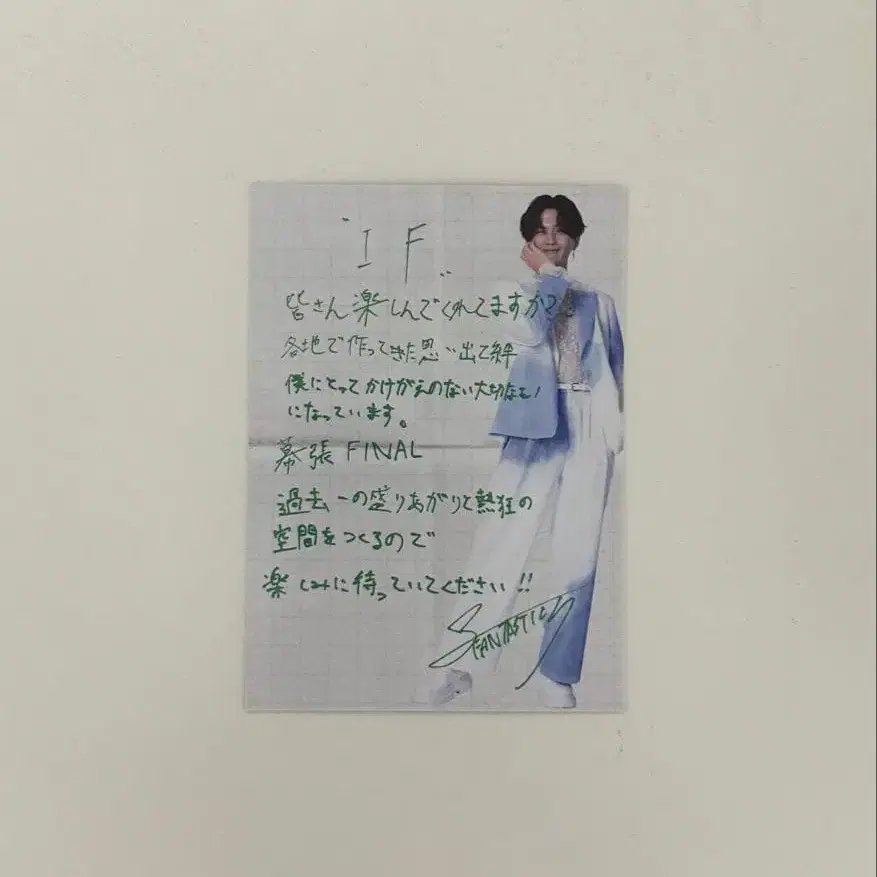 "IF"
皆さん楽しんでくれてますか?
各地で作ってきた思い出て絆
僕にとってかけがえのない大切なモノ
になっています。
幕張 FINAL
過去一の盛りあがりと熱狂の
空間をつくるので
楽しみに待っていてください!!
FANTASTICS